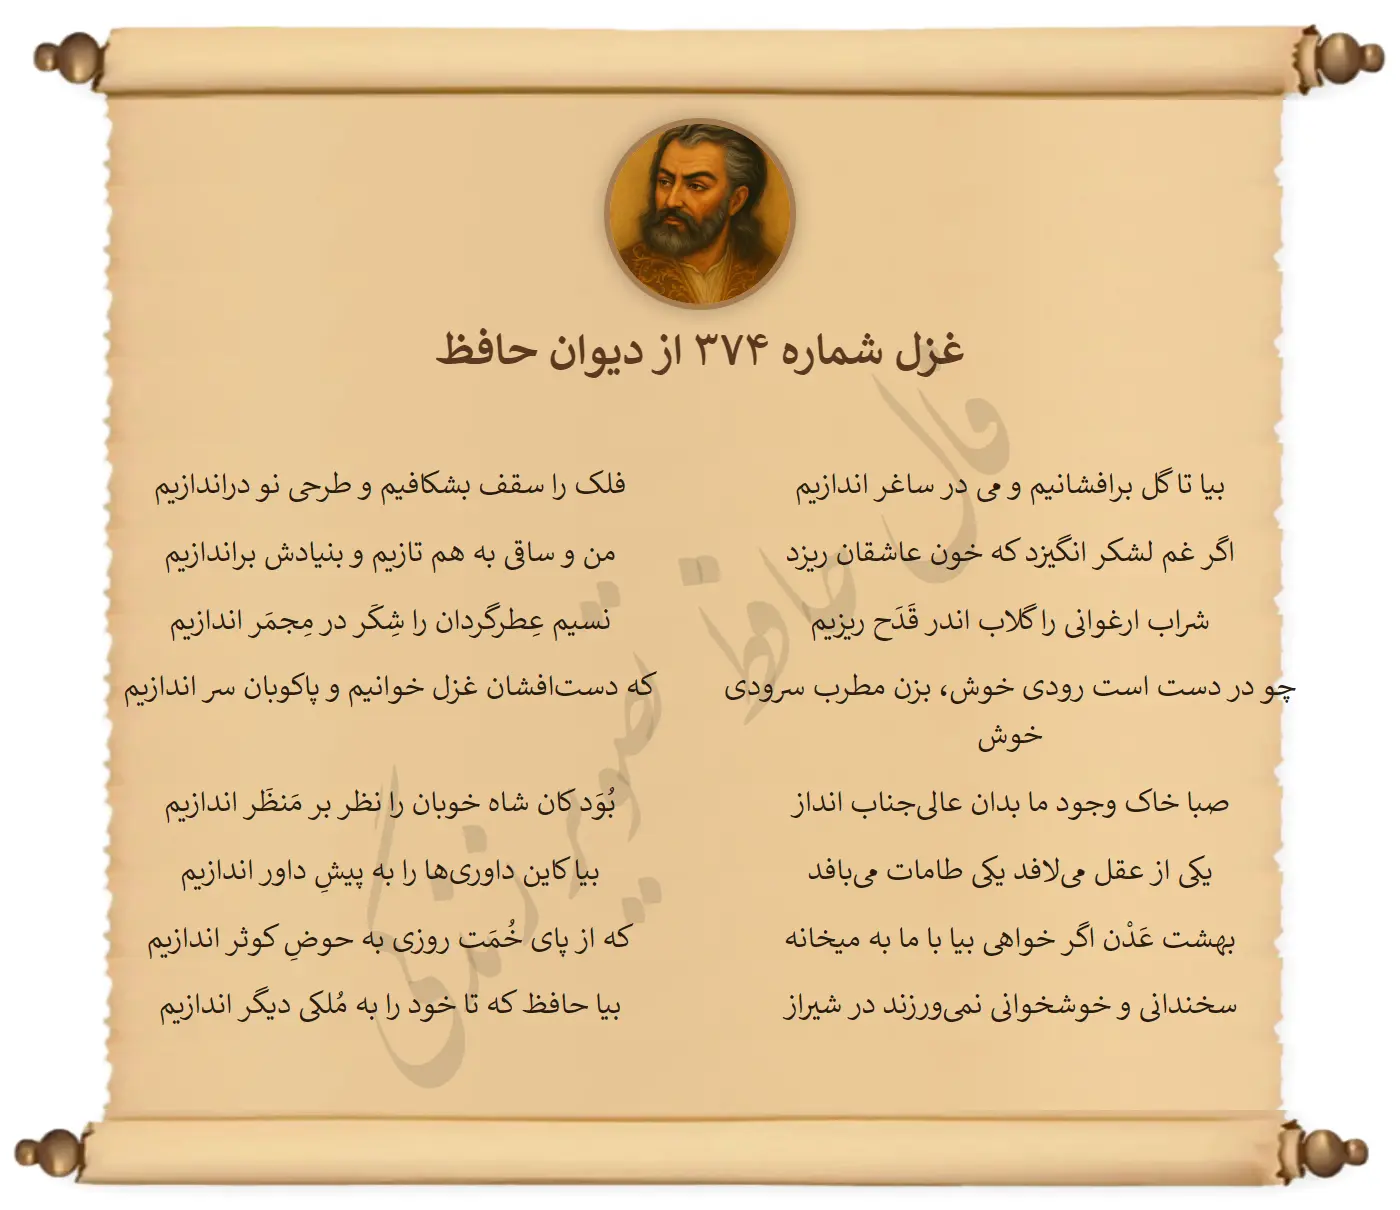 غزل شماره ۳۷۴ از دیوان حافظ
بیا تا گل برافشانیم و می در ساغر اندازیم
فلک را سقف بشکافیم و طرحی نو دراندازیم
اگر غم لشکر انگیزد که خون عاشقان ریزد
من و ساقی به هم تازیم و بنیادش براندازیم
شراب ارغوانی را گلاب اندر قَدَح ریزیم
نسیم عِطرگردان را شِکَر در مِجمَر اندازیم
چو در دست است رودی خوش، بزن مطرب سرودی
خوش
که دست‌افشان غزل خوانیم و پاکوبان سر اندازیم
صبا خاک وجود ما بدان عالی‌جناب انداز
بُوَد کان شاه خوبان را نظر بر مَنظَر اندازیم
یکی از عقل می‌لافد یکی طامات می‌بافد
بیا کاین داوری‌ها را به پیشِ داور اندازیم
بهشت عَدْن اگر خواهی بیا با ما به میخانه
که از پای خُمَت روزی به حوضِ کوثر اندازیم
سخندانی و خوشخوانی نمی‌ورزند در شیراز
بیا حافظ که تا خود را به مُلکی دیگر اندازیم
فال حافظ تصویر زندگی